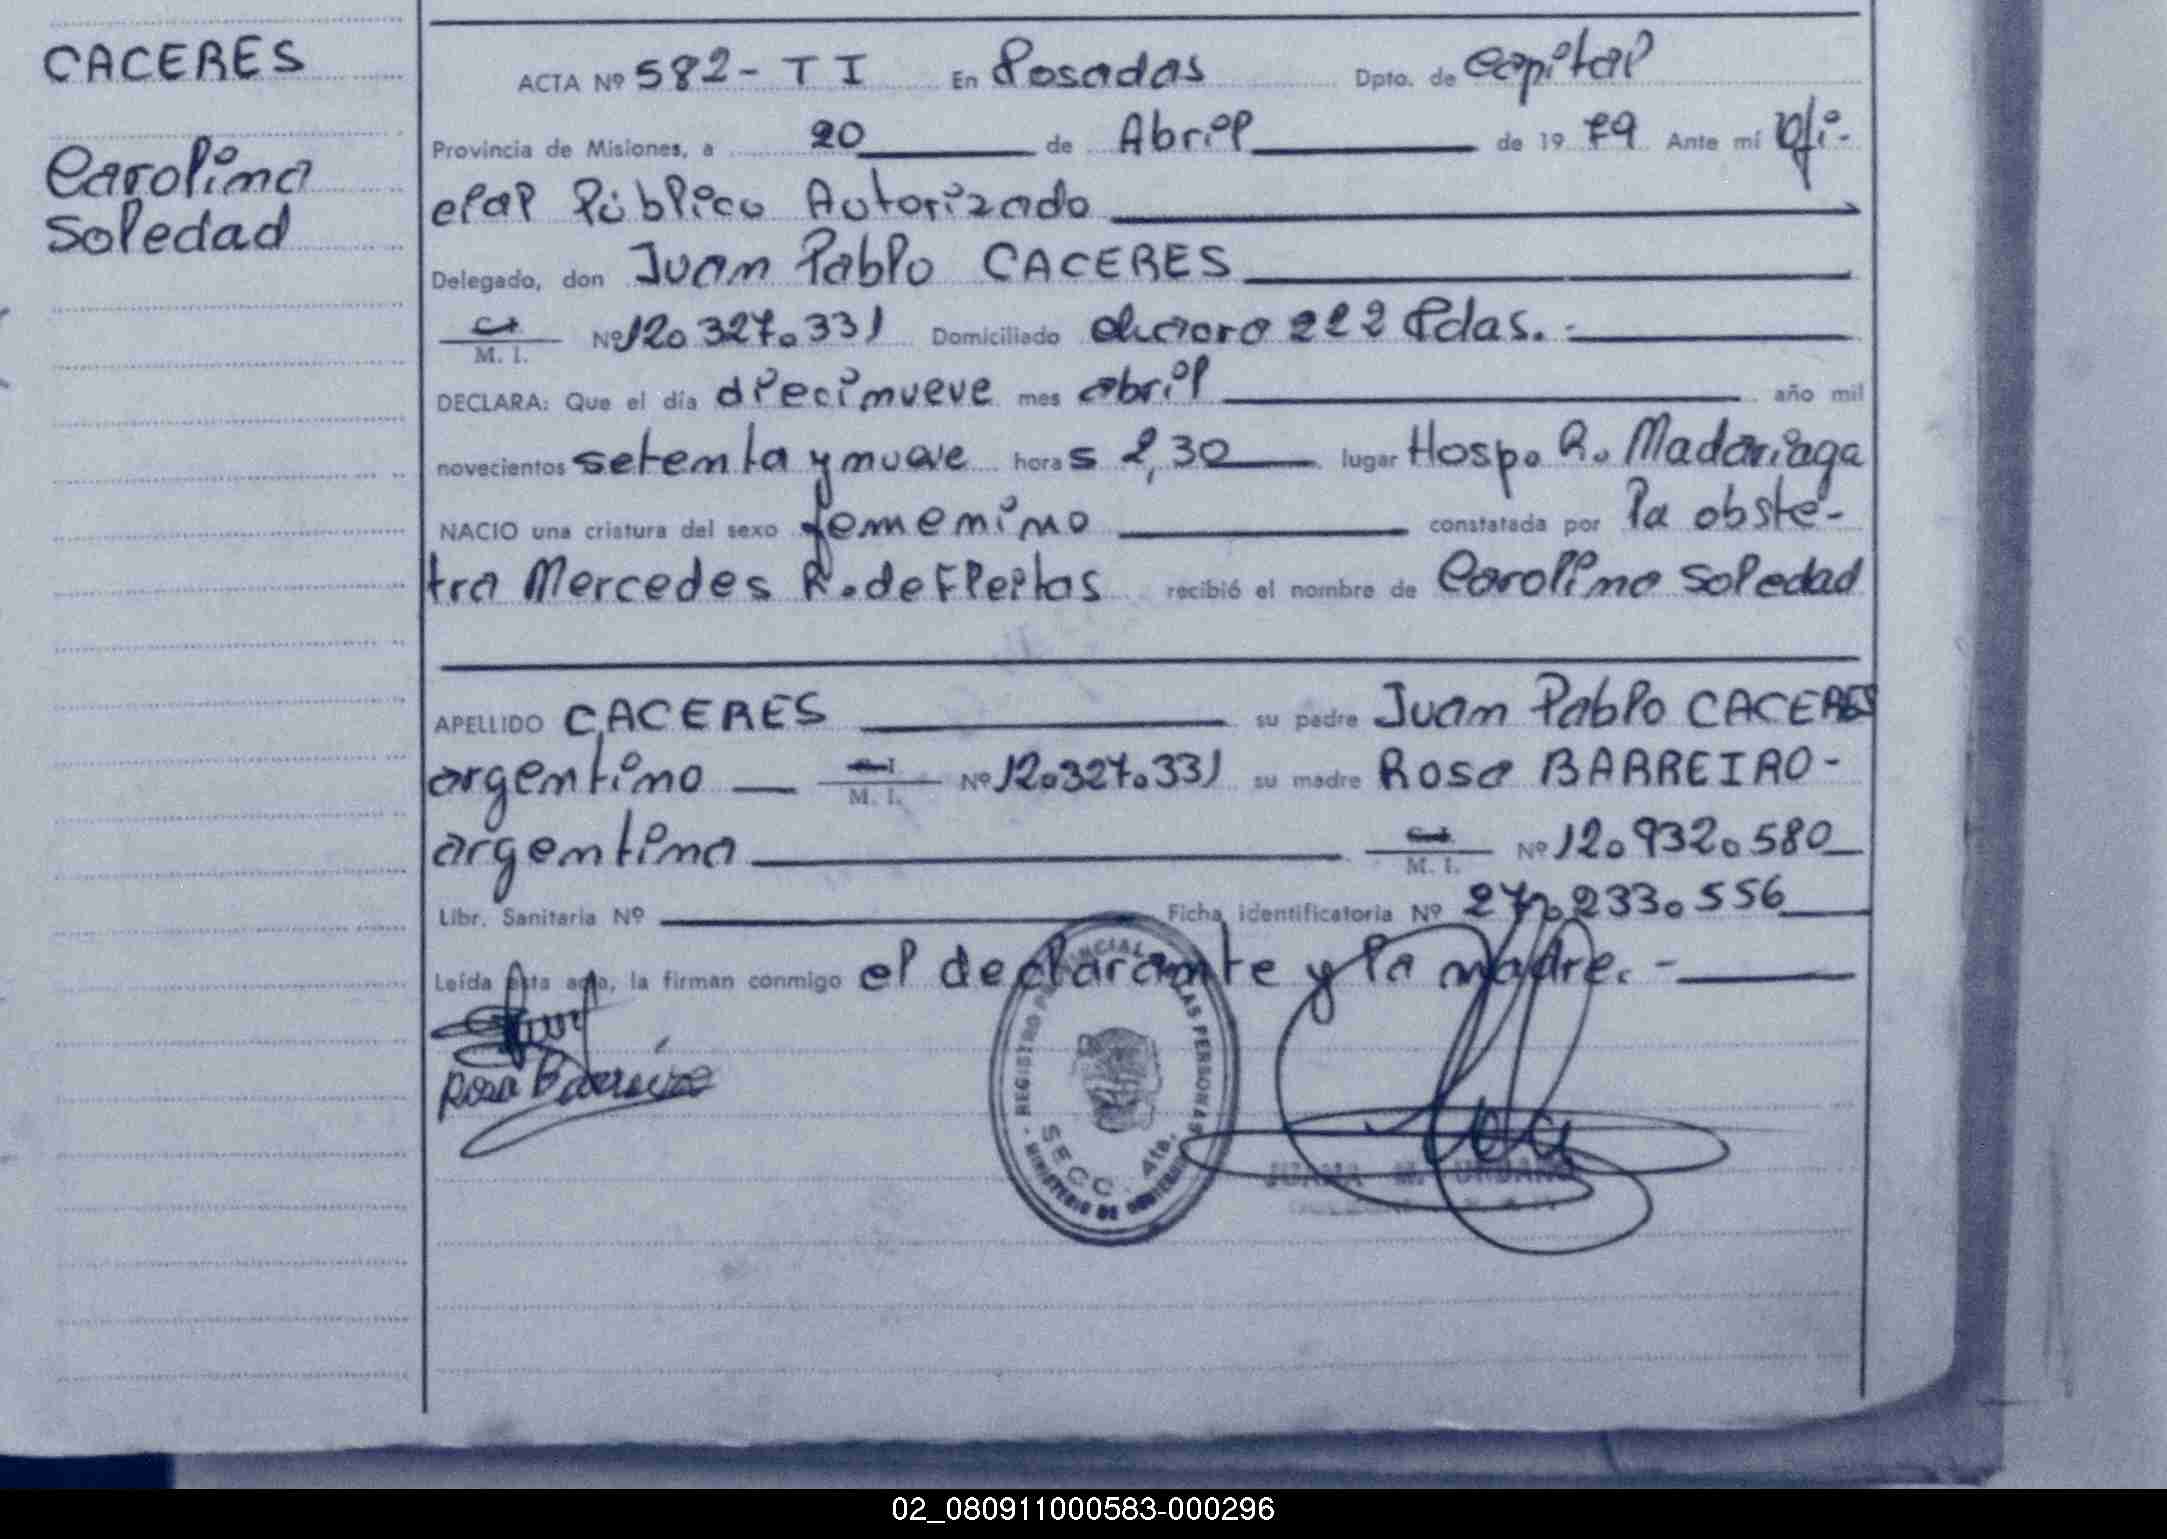 CACERES
Carolina
Soledad
ACTA Nº 582 - T I En Posadas Dpto. de Capital
Provincia de Misiones, a 20 de Abril de 19 79 Ante mí Ofi-
cial Público Autorizado
Delegado, don Juan Pablo CACERES
M. I. Nº 12.327.331 Domiciliado 222 Pdas.-
DECLARA: Que el día diecinueve mes abril año mil
novecientos setenta y nueve horas 2,30 lugar Hosp. R. Madariaga
NACIO una criatura del sexo femenino constatada por la obste-
tra Mercedes R. de Fleitas recibió el nombre de Carolina Soledad
APELLIDO CACERES su padre Juan Pablo CACERES
argentino M. I. Nº 12.327.331 su madre Rosa BARREIRO-
argentina M. I. Nº 12.932.580
Libr. Sanitaria Nº Ficha identificatoria Nº 27.233.556
Leída esta acta, la firman conmigo el declarante y la madre.-
Rosa Barreiro
REGISTRO PROVINCIAL DE LAS PERSONAS
SECC. 4ta.
MINISTERIO DE GOBIERNO
JUANA M. URBANO
02_080911000583-000296